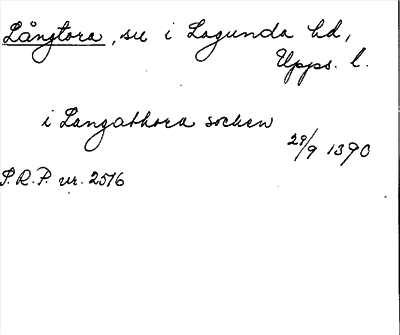 Långtora, sn i Lagunda hd,
Upps. l.
i Langathora socken
29/9 1390
S.R.P. nr. 2516